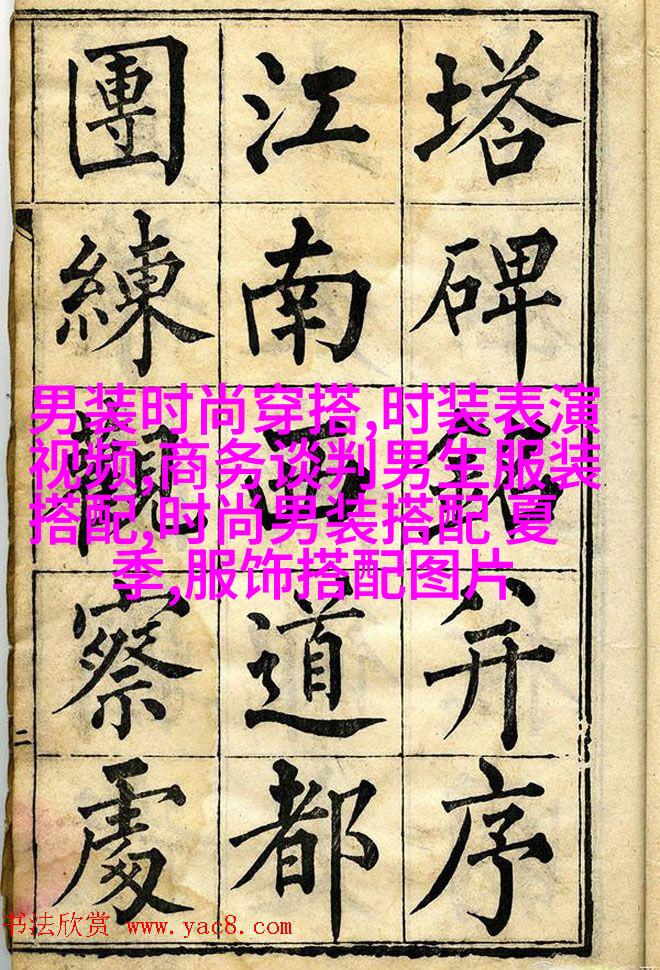 塔碑銘并序
江南西道都
團練觀察處
二
男装时尚穿搭,时装表演
视频,商务谈判男生服装
搭配,时尚男装搭配 夏
季,服饰搭配图片
书法欣赏 www.yac8.com